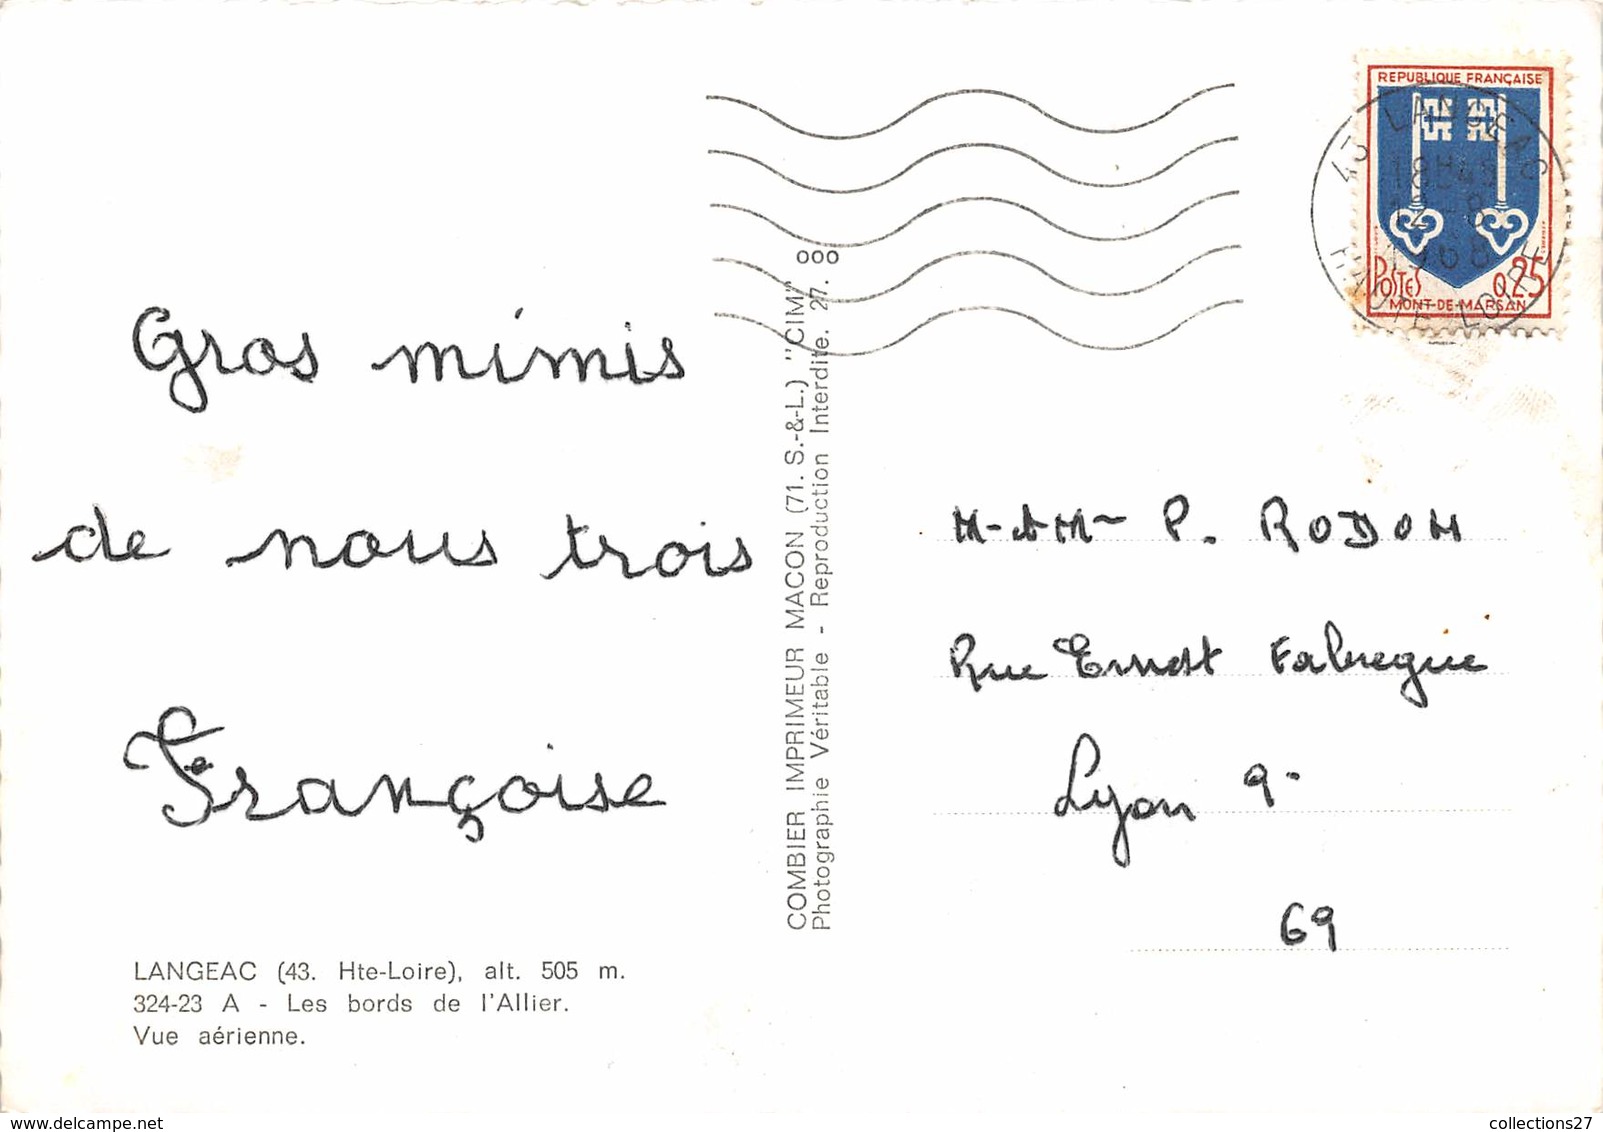 Gros mimis
de nous trois
Françoise
LANGEAC (43. Hte-Loire), alt. 505 m.
324-23 A - Les bords de l'Allier.
Vue aérienne.
COMBIER IMPRIMEUR MACON (71. S.-&-L.) "CIM"
Photographie Véritable - Reproduction Interdite. 27. ooo
REPUBLIQUE FRANÇAISE
POSTES 0,25
MONT-DE-MARSAN
43 LANGEAC
18H45
12-8
1968
HAUTE-LOIRE
M. & Mme P. RODON
Rue Ernest Fabregue
Lyon 9e
69
collections27